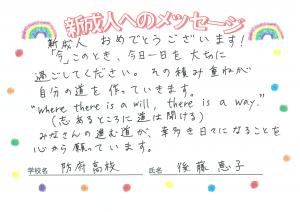 新成人へのメッセージ
新成人 おめでとうございます!
「今」このとき、今日一日を大切に
過ごしてください。その積み重ねが
自分の道を作っていきます。
"Where there is a will, there is a way."
(志あるところに道は開ける)
みなさんの進む道が、幸多き日々になることを
心から願っています。
学校名 防府高校 氏名 後藤恵子